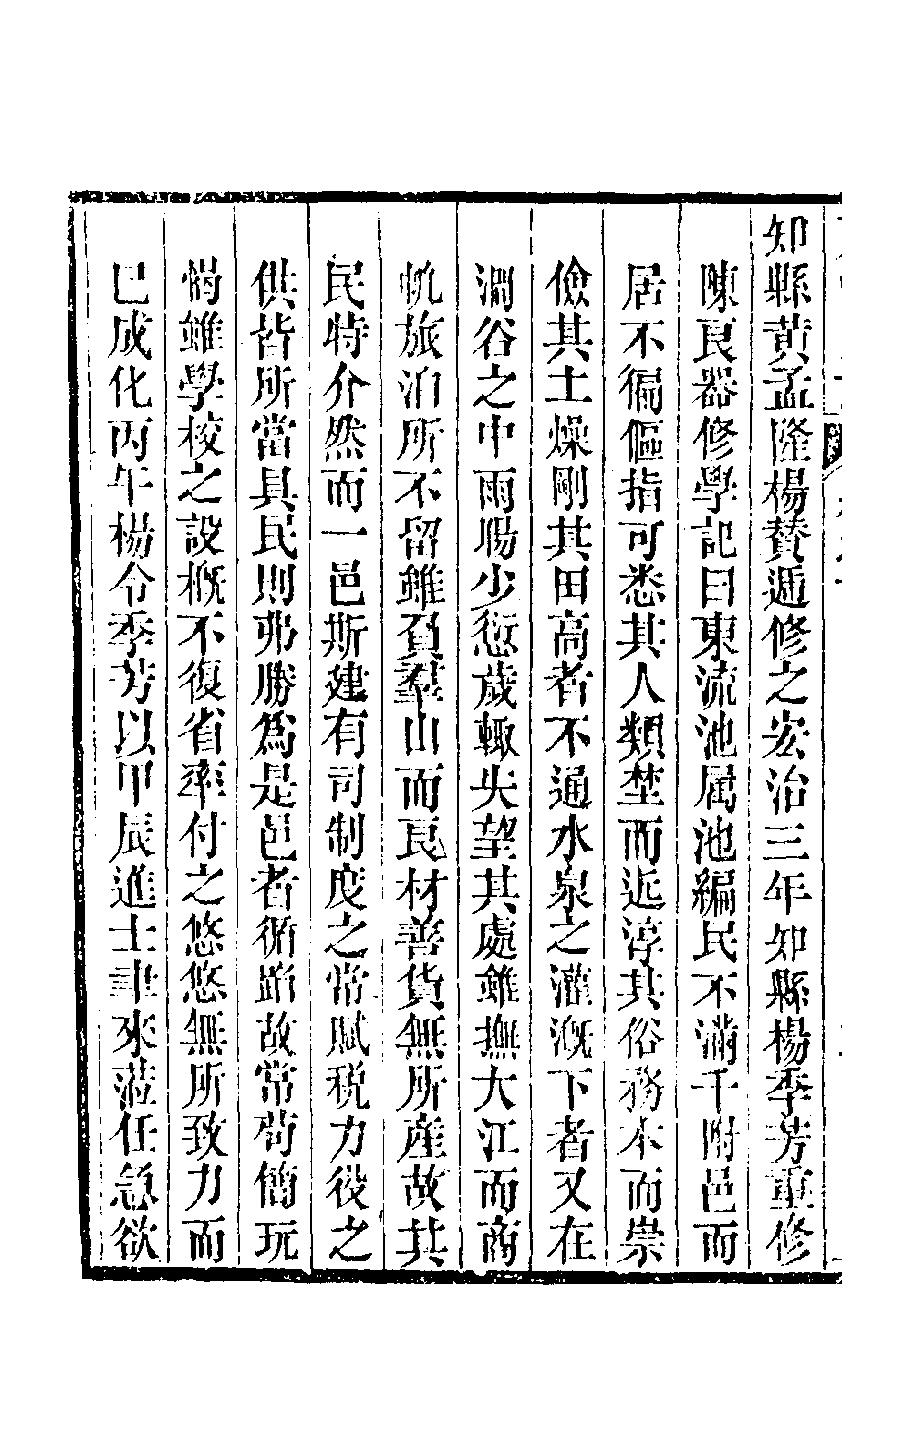 知縣黄孟隆楊贊遞修之宏治三年知縣楊季芳重修
陳良器修學記曰東流池屬池編民不滿千附邑而
居不徧傴指可悉其人類埜而近淳其俗務本而崇
儉其土燥剛其田高者不通水泉之灌漑下者又在
澗谷之中雨暘少愆歲輙失望其處雖撫大江而商
帆旅泊所不留雖負羣山而良材善貨無所産故其
民特介然而一邑斯建有司制度之常賦税力役之
供皆所當具民則弗勝爲是邑者循蹈故常苟簡玩
愒雖學校之設槪不復省率付之悠悠無所致力而
已成化丙午楊令季芳以甲辰進士聿來蒞任急欲